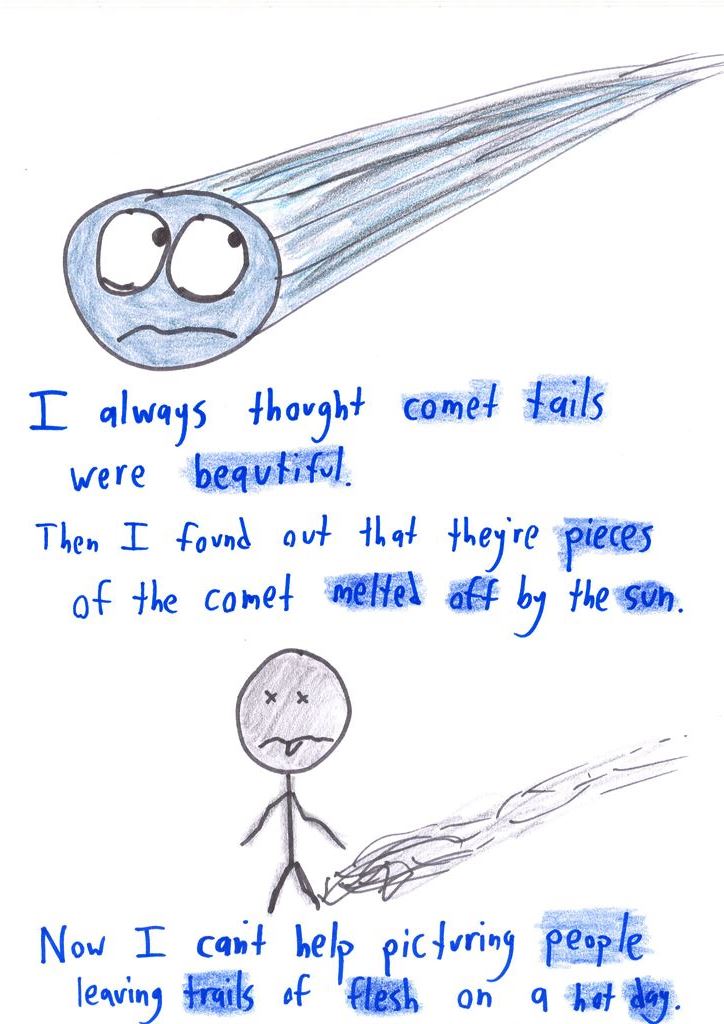 I always thought comet tails
were beautiful.
Then I found out that they're pieces
of the comet melted off by the sun.
Now I can't help picturing people
leaving trails of flesh on a hot day.